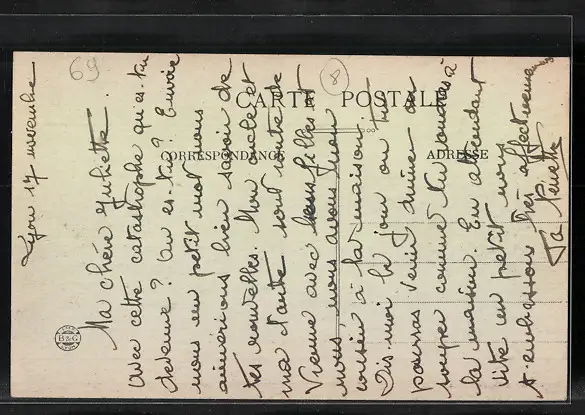 69
8
CARTE POSTALE
CORRESPONDANCE
ADRESSE
B & G
Lyon 17 novembre
Ma chère Juliette.
Avec cette catastrophe qu'es-tu
devenue? Où es-tu? Envoie
nous un petit mot nous
aimerions bien savoir de
tes nouvelles. Mon oncle et
ma tante sont route de
Vienne avec leurs filles et
nous, nous avons mon
cousin à la maison.
Dis moi le jour où tu
pourras venir dîner ou
souper comme tu voudras à
la maison. En attendant
vite un petit nous
t'embrassons très affectueusement
Ta